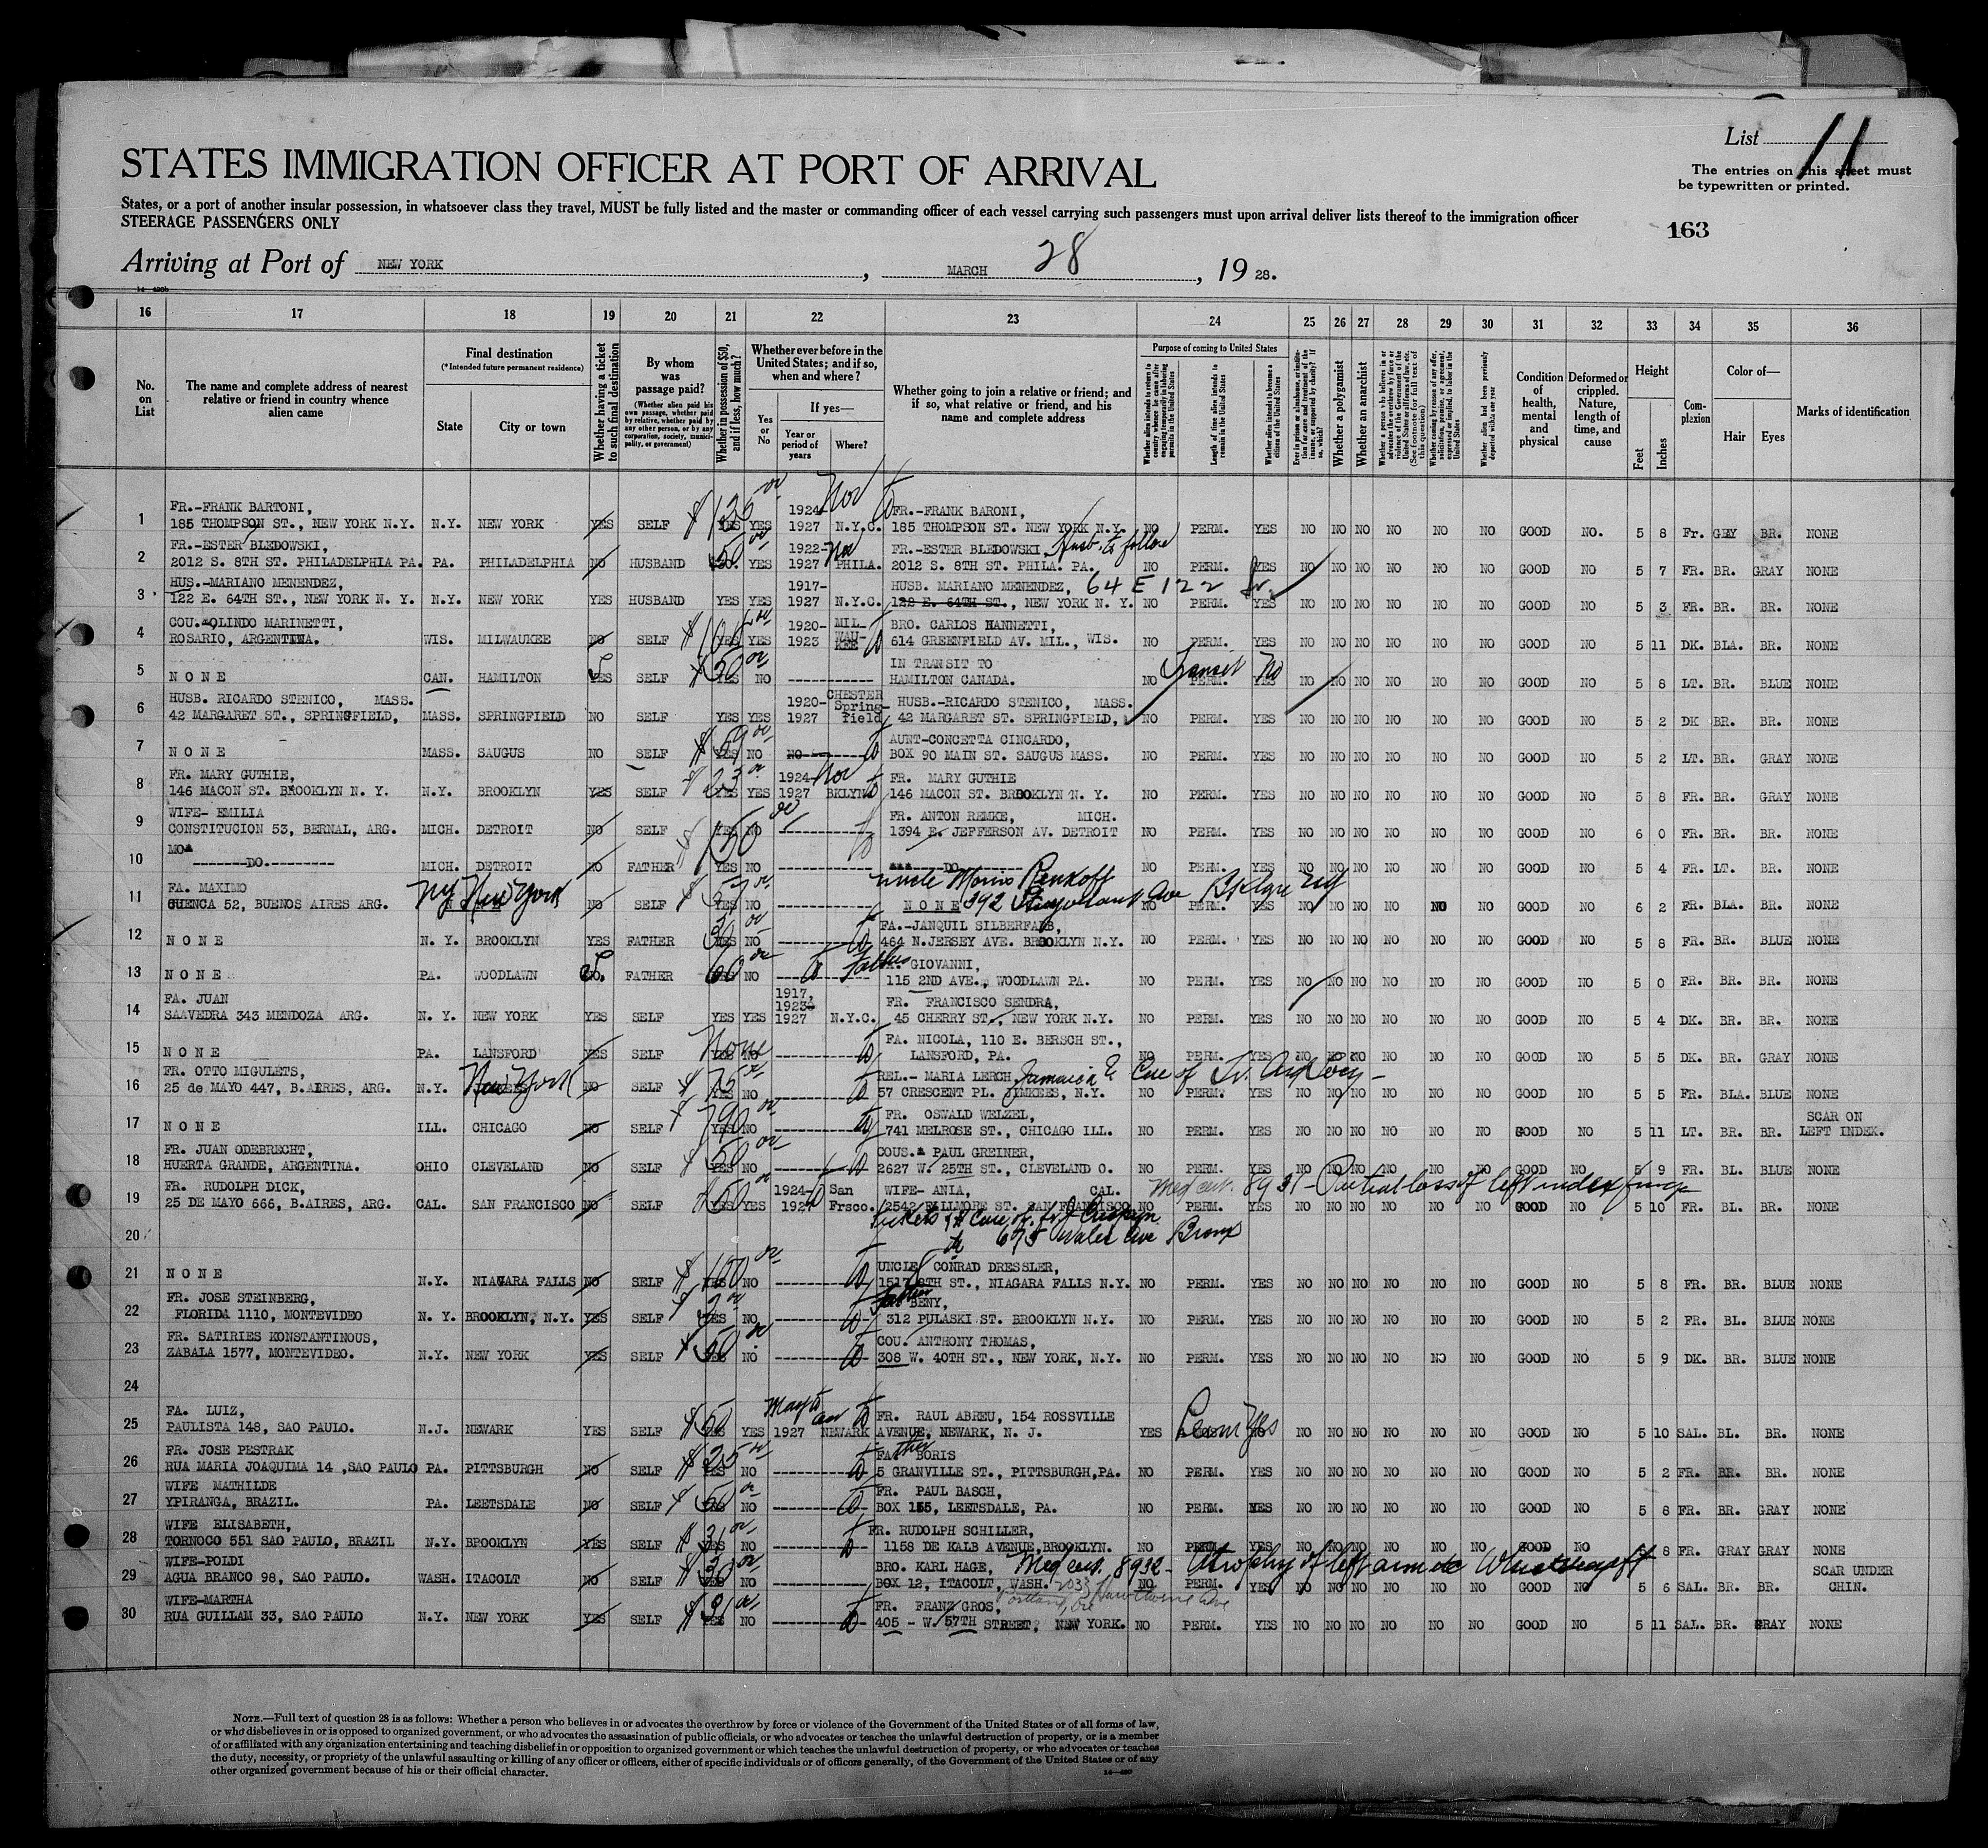 List 11
STATES IMMIGRATION OFFICER AT PORT OF ARRIVAL
The entries on this sheet must
be typewritten or printed.
States, or a port of another insular possession, in whatsoever class they travel, MUST be fully listed and the master or commanding officer of each vessel carrying such passengers must upon arrival deliver lists thereof to the immigration officer
STEERAGE PASSENGERS ONLY
163
Arriving at Port of NEW YORK, MARCH 28, 19 28.
16 17 18 19 20 21 22 23 24 25 26 27 28 29 30 31 32 33 34 35 36
No. on List
The name and complete address of nearest relative or friend in country whence alien came
Final destination
(*Intended future permanent residence)
State
City or town
Whether having a ticket to such final destination
By whom was passage paid?
(Whether alien paid his own passage, whether paid by relative, whether paid by any other person, or by any corporation, society, municipality, or government)
Whether in possession of $50, and if less, how much?
Whether ever before in the United States; and if so, when and where?
Yes or No
If yes—
Year or period of years
Where?
Whether going to join a relative or friend; and if so, what relative or friend, and his name and complete address
Purpose of coming to United States
Length of time alien intends to remain in the United States
Whether alien intends to become a citizen of the United States
Whether a polygamist
Whether an anarchist
Condition of health, mental and physical
Deformed or crippled. Nature, length of time, and cause
Height
Feet
Inches
Complexion
Color of—
Hair
Eyes
Marks of identification
1 FR.-FRANK BARTONI,
185 THOMPSON ST., NEW YORK N.Y. N.Y. NEW YORK YES SELF YES YES 1924 1927 N.Y.C. FR.-FRANK BARONI,
185 THOMPSON ST. NEW YORK N.Y. NO PERM. YES NO NO NO NO NO NO GOOD NO. 5 8 Fr. GEY BR. NONE
2 FR.-ESTER BLEDOWSKI,
2012 S. 8TH ST. PHILADELPHIA PA. PA. PHILADELPHIA NO HUSBAND YES 1922- 1927 PHILA. FR.-ESTER BLEDOWSKI Husb. to follow
2012 S. 8TH ST. PHILA. PA. NO PERM. YES NO NO NO NO NO NO GOOD NO 5 7 FR. BR. GRAY NONE
3 HUS.-MARIANO MENENDEZ,
122 E. 64TH ST., NEW YORK N. Y. N.Y. NEW YORK YES HUSBAND YES YES 1917- 1927 N.Y.C. HUSB. MARIANO MENENDEZ, 64 E 122
128 E. 64TH ST., NEW YORK N. Y. NO PERM. YES NO NO NO NO NO NO GOOD NO 5 3 FR. BR. BR. NONE
4 COU. OLINDO MARINETTI,
ROSARIO, ARGENTINA. WIS. MILWAUKEE NO SELF YES YES 1920- 1923 MIL-WAU-KEE BRO. CARLOS HANNETTI,
614 GREENFIELD AV. MIL., WIS. NO PERM. YES NO NO NO NO NO NO GOOD NO 5 11 DK. BLA. BR. NONE
5 NONE CAN. HAMILTON YES SELF $50 YES NO IN TRANSIT TO
HAMILTON CANADA. NO PERM. YES No NO NO NO NO NO NO GOOD NO 5 8 LT. BR. BLUE NONE
6 HUSB. RICARDO STENICO, MASS.
42 MARGARET ST., SPRINGFIELD, MASS. SPRINGFIELD NO SELF YES YES 1920- 1927 CHESTER Spring-field HUSB.-RICARDO STENICO, MASS.
42 MARGARET ST. SPRINGFIELD, NO PERM. YES NO NO NO NO NO NO GOOD NO 5 2 DK BR. BR. NONE
7 NONE MASS. SAUGUS NO SELF $59 YES NO NO AUNT-CONCETTA CINCARDO,
BOX 90 MAIN ST. SAUGUS MASS. NO PERM. YES NO NO NO NO NO NO GOOD NO 5 2 LT. BR. GRAY NONE
8 FR. MARY GUTHIE,
146 MACON ST. BROOKLYN N. Y. N.Y. BROOKLYN YES SELF YES YES 1924- 1927 BKLYN FR. MARY GUTHIE
146 MACON ST. BROOKLYN N. Y. NO PERM. YES NO NO NO NO NO NO GOOD NO 5 8 FR. BR. GRAY NONE
9 WIFE- EMILIA
CONSTITUCION 53, BERNAL, ARG. MICH. DETROIT NO SELF YES NO FR. ANTON REMKE, MICH.
1394 E. JEFFERSON AV. DETROIT NO PERM. YES NO NO NO NO NO NO GOOD NO 6 0 FR. BR. BR. NONE
10 MO
--------DO.--------- MICH. DETROIT NO FATHER $150 YES NO DO NO PERM. YES NO NO NO NO NO NO GOOD NO 5 4 FR. LT. BR. NONE
11 FA. MAXIMO
CUENCA 52, BUENOS AIRES ARG. NY New York NO SELF YES NO uncle Morris
NONE 392 NO PERM. YES NO NO NO NO NO NO GOOD NO 6 2 FR. BLA. BR. NONE
12 NONE N. Y. BROOKLYN YES FATHER YES NO FA.-JANQUIL SILBERFARB,
464 N.JERSEY AVE. BROOKLYN N.Y. NO PERM. YES NO NO NO NO NO NO GOOD NO 5 8 FR. BR. BLUE NONE
13 NONE PA. WOODLAWN NO. FATHER 60 NO Father GIOVANNI,
115 2ND AVE., WOODLAWN PA. NO PERM. YES NO NO NO NO NO NO GOOD NO 5 0 FR. BR. BR. NONE
14 FA. JUAN
SAAVEDRA 343 MENDOZA ARG. N. Y. NEW YORK YES SELF YES YES 1917, 1923- 1927 N.Y.C. FR. FRANCISCO SENDRA,
45 CHERRY ST., NEW YORK N.Y. NO PERM. YES NO NO NO NO NO NO GOOD NO 5 4 DK. BR. BR. NONE
15 NONE PA. LANSFORD YES SELF None YES NO FA. NICOLA, 110 E. BERSCH ST.,
LANSFORD, PA. NO PERM. YES NO NO NO NO NO NO GOOD NO 5 5 DK. BR. GRAY NONE
16 FR. OTTO MIGULETS,
25 de MAYO 447, B.AIRES, ARG. N.Y. New York NO SELF $75 YES NO REL.- MARIA LERCH, Jamaica Care of
57 CRESCENT PL. YINKEES, N.Y. NO PERM. YES NO NO NO NO NO NO GOOD NO 5 5 FR. BLA. BLUE NONE
17 NONE ILL. CHICAGO NO SELF $790 YES NO FR. OSWALD WELZEL,
741 MELROSE ST., CHICAGO ILL. NO PERM. YES NO NO NO NO NO NO GOOD NO 5 11 LT. BR. BR. SCAR ON LEFT INDEX.
18 FR. JUAN ODEBRECHT,
HUERTA GRANDE, ARGENTINA. OHIO CLEVELAND NO SELF $50 YES NO COUS. PAUL GREINER,
2627 W. 25TH ST., CLEVELAND O. NO PERM. YES NO NO NO NO NO NO GOOD NO 5 9 FR. BL. BLUE NONE
19 FR. RUDOLPH DICK, Med cert. 8931 - Partial loss of left index finger
25 DE MAYO 666, B.AIRES, ARG. CAL. SAN FRANCISCO NO SELF $50 YES YES 1924- 1927 San Frsco. WIFE- ANIA, CAL.
2542 FILLMORE ST. SAN FRANCISCO NO PERM. YES NO NO NO NO NO NO GOOD NO 5 10 FR. BL. BR. NONE
20 675 Wales Ave Bronx
21 NONE N.Y. NIAGARA FALLS NO SELF $100 YES NO UNCLE CONRAD DRESSLER,
1517 8TH ST., NIAGARA FALLS N.Y. NO PERM. YES NO NO NO NO NO NO GOOD NO 5 8 FR. BR. BLUE NONE
22 FR. JOSE STEINBERG,
FLORIDA 1110, MONTEVIDEO N. Y. BROOKLYN, N.Y. YES SELF YES NO father BENY,
312 PULASKI ST. BROOKLYN N.Y. NO PERM. YES NO NO NO NO NO NO GOOD NO 5 2 FR. BL. BLUE NONE
23 FR. SATIRIES KONSTANTINOUS,
ZABALA 1577, MONTEVIDEO. N.Y. NEW YORK YES SELF $50 YES NO COU. ANTHONY THOMAS,
308 W. 40TH ST., NEW YORK, N.Y. NO PERM. YES NO NO NO NO NO NO GOOD NO 5 9 DK. BR. BLUE NONE
24
25 FA. LUIZ,
PAULISTA 148, SAO PAULO. N.J. NEWARK YES SELF $50 YES YES 1927 NEWARK FR. RAUL ABREU, 154 ROSSVILLE
AVENUE, NEWARK, N. J. YES Perm Yes NO NO NO NO NO NO GOOD NO 5 10 SAL. BL. BR. NONE
26 FR. JOSE PESTRAK
RUA MARIA JOAQUIMA 14 ,SAO PAULO PA. PITTSBURGH NO SELF $25 YES NO FATher BORIS
5 GRANVILLE ST., PITTSBURGH,PA. NO PERM. YES NO NO NO NO NO NO GOOD NO 5 2 FR. BR. BR. NONE
27 WIFE MATHILDE
YPIRANGA, BRAZIL. PA. LEETSDALE NO SELF $50 YES NO FR. PAUL BASCH,
BOX 155, LEETSDALE, PA. NO PERM. YES NO NO NO NO NO NO GOOD NO 5 8 FR. BR. GRAY NONE
28 WIFE ELISABETH,
TORNOCO 551 SAO PAULO, BRAZIL N.Y. BROOKLYN YES SELF YES NO FR. RUDOLPH SCHILLER,
1158 DE KALB AVENUE,BROOKLYN. NO PERM. YES NO NO NO NO NO NO GOOD NO 8 FR. GRAY GRAY NONE
29 WIFE-POLDI Med cert. 8932 - Atrophy of left arm
AGUA BRANCO 98, SAO PAULO. WASH. ITACOLT NO SELF $30 YES NO BRO. KARL HAGE,
BOX 12, ITACOLT, WASH. NO PERM. YES NO NO NO NO NO NO GOOD NO 5 6 SAL. BR. BR. SCAR UNDER CHIN.
Portland, Ore Hawthorne Ave
30 WIFE-MARTHA
RUA GUILLAM 33, SAO PAULO N.Y. NEW YORK YES SELF YES NO FR. FRANZ GROS,
405 - W. 57TH STREET, NEW YORK. NO PERM. YES NO NO NO NO NO NO GOOD NO 5 11 SAL. BR. GRAY NONE
NOTE.—Full text of question 28 is as follows: Whether a person who believes in or advocates the overthrow by force or violence of the Government of the United States or of all forms of law,
or who disbelieves in or is opposed to organized government, or who advocates the assassination of public officials, or who advocates or teaches the unlawful destruction of property, or is a member
of or affiliated with any organization entertaining and teaching disbelief in or opposition to organized government or which teaches the unlawful destruction of property, or who advocates or teaches
the duty, necessity, or propriety of the unlawful assaulting or killing of any officer or officers, either of specific individuals or of officers generally, of the Government of the United States or of any
other organized government because of his or their official character.